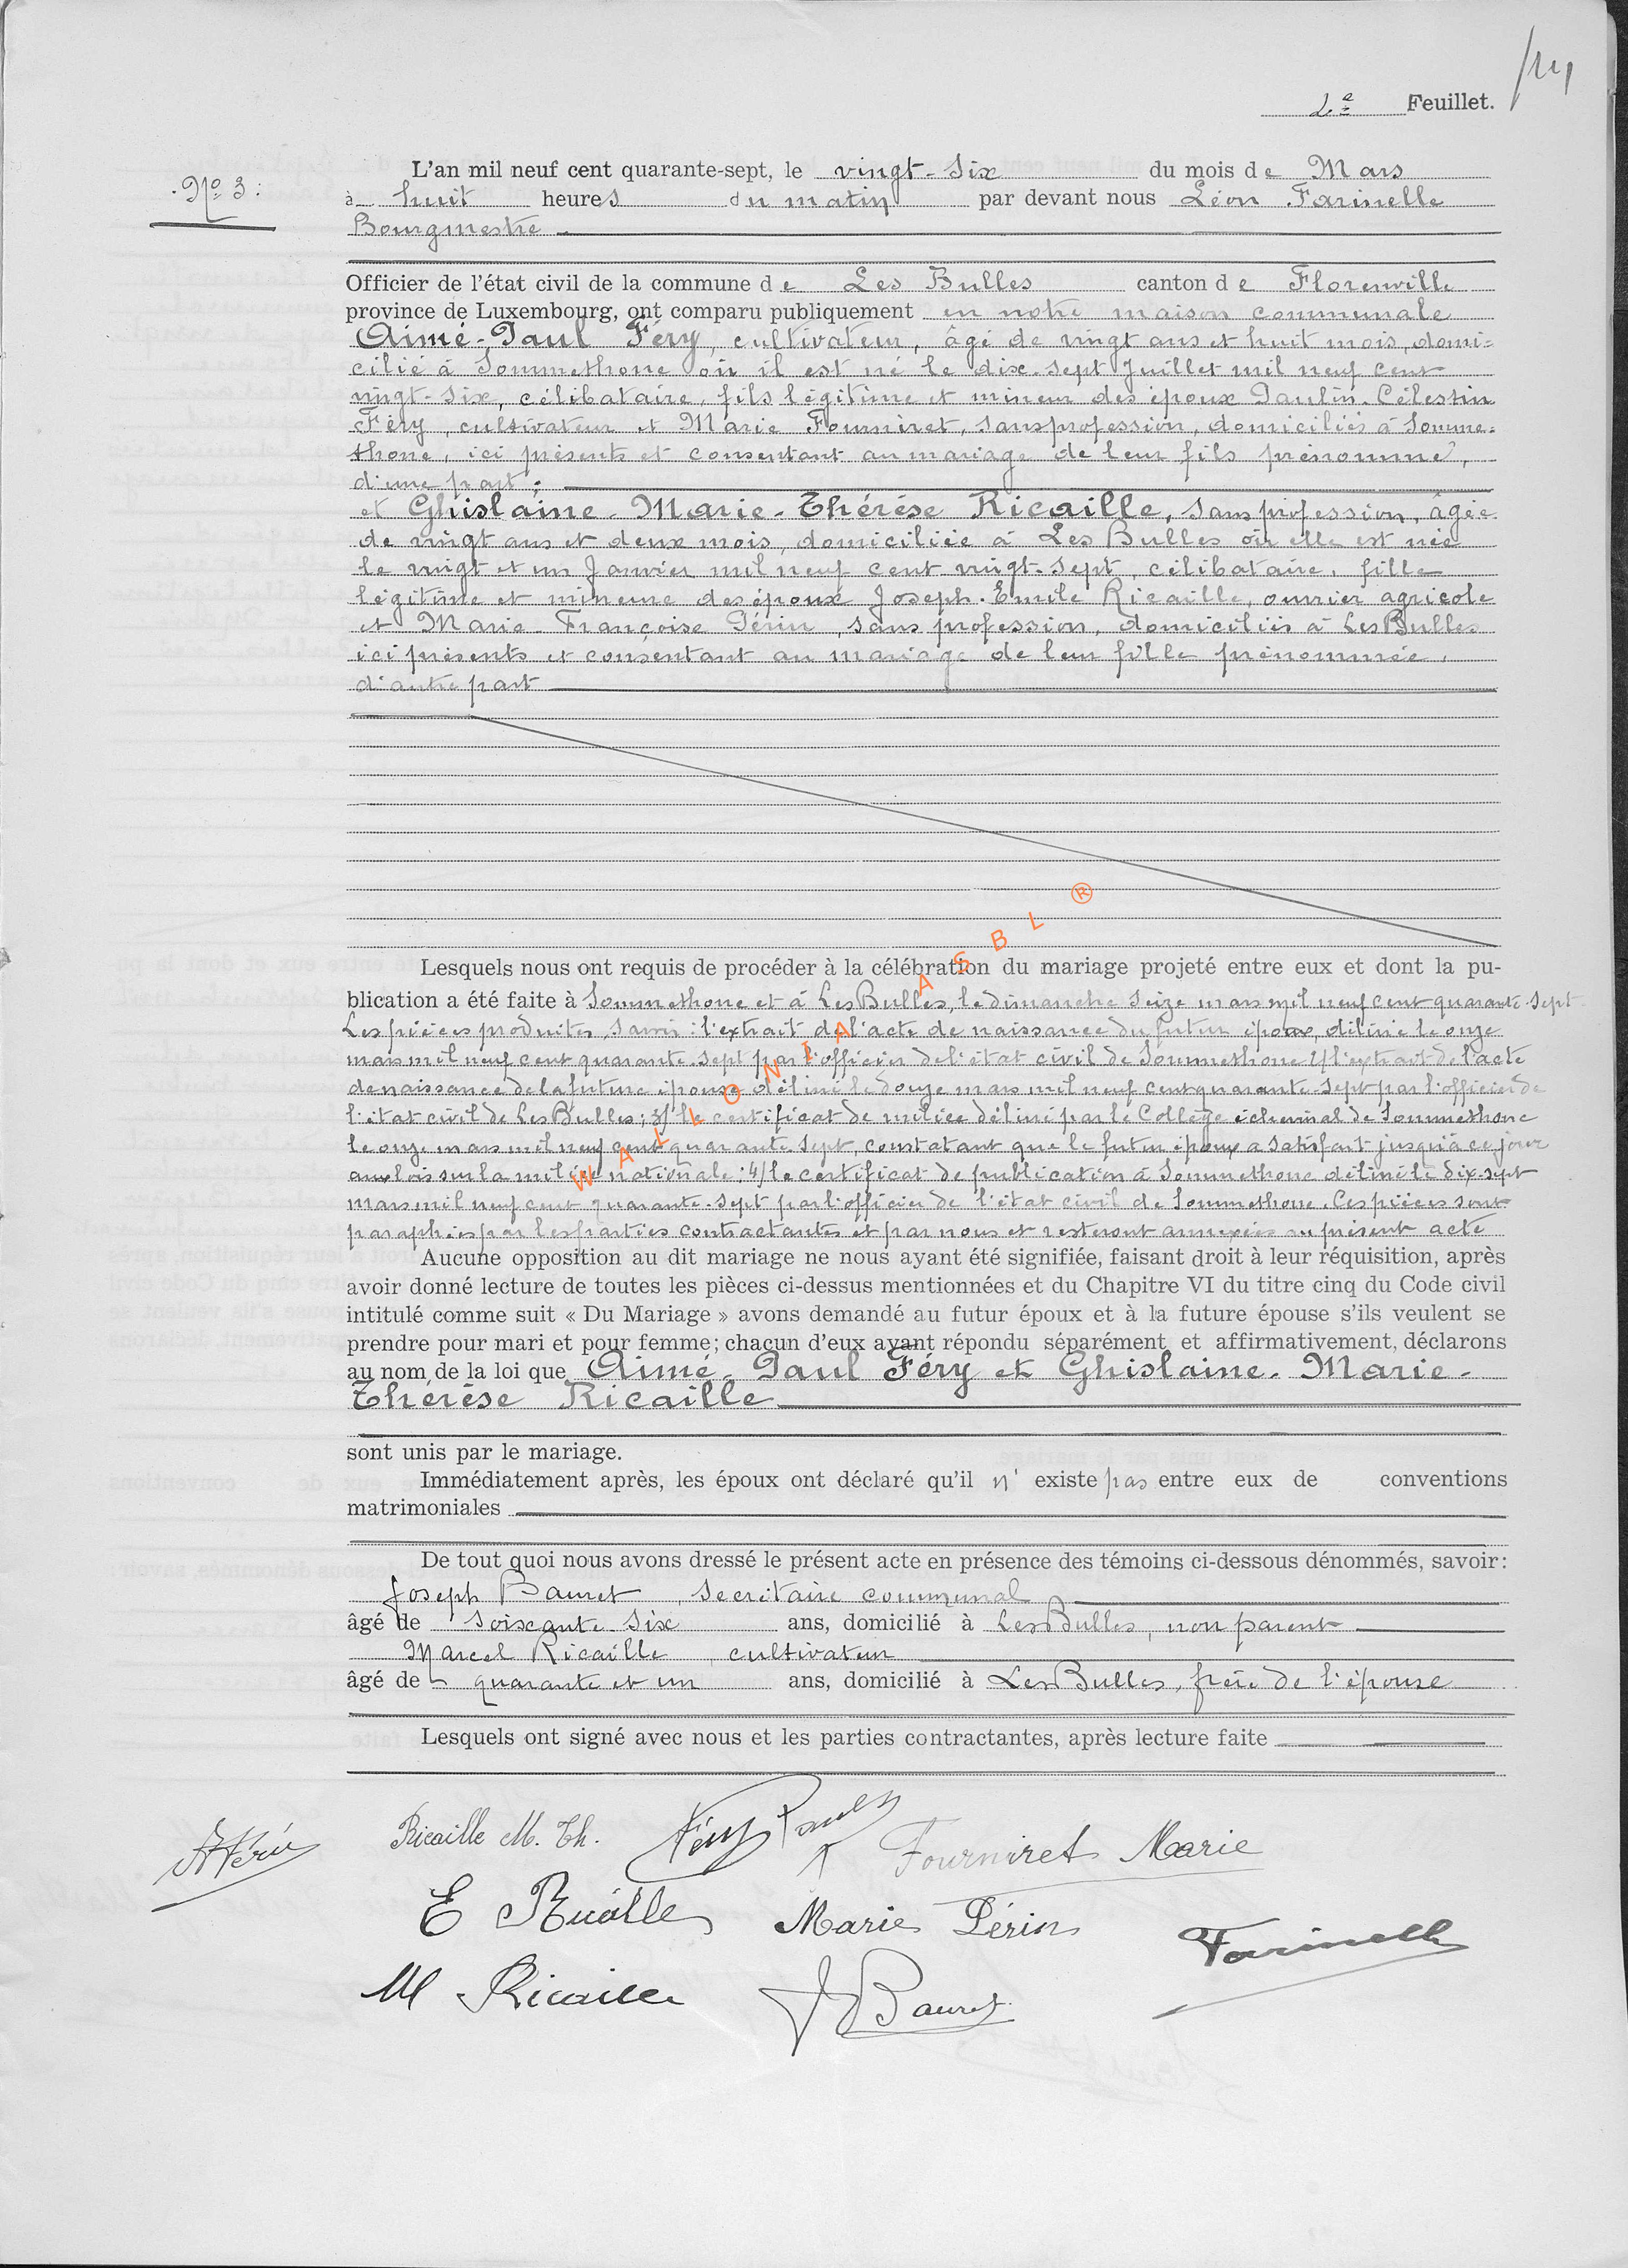 2e Feuillet.
L'an mil neuf cent quarante-sept, le vingt-six du mois de Mars
No 3: à huit heures du matin par devant nous Léon Farinelle
Bourgmestre
Officier de l'état civil de la commune de Les Bulles canton de Florenville
province de Luxembourg, ont comparu publiquement en notre maison communale
Aimé-Paul Féry, cultivateur, âgé de vingt ans et huit mois, domi=
cilié à Sommethone où il est né le dix-sept Juillet mil neuf cent
vingt-six, célibataire, fils légitime et mineur des époux Paulin-Célestin
Féry, cultivateur et Marie Fourniret, sans profession, domiciliés à Somme=
thone, ici présents et consentant au mariage de leur fils prénommé,
d'une part;
et Ghislaine-Marie-Thérèse Ricaille, sans profession, âgée
de vingt ans et deux mois, domiciliée à Les Bulles où elle est née
le vingt et un Janvier mil neuf cent vingt-sept, célibataire, fille
légitime et mineure des époux Joseph-Emile Ricaille, ouvrier agricole
et Marie-Françoise Périn, sans profession, domiciliés à Les Bulles
ici présents et consentant au mariage de leur fille prénommée,
d'autre part
Lesquels nous ont requis de procéder à la célébration du mariage projeté entre eux et dont la pu-
blication a été faite à Sommethone et à Les Bulles, le dimanche seize mars mil neuf cent quarante-sept
Les pièces produites, savoir: l'extrait de l'acte de naissance du futur époux, délivré le onze
mars mil neuf cent quarante-sept par l'officier de l'état civil de Sommethone 2/ l'extrait de l'acte
de naissance de la future épouse délivré le douze mars mil neuf cent quarante-sept par l'officier de
l'état civil de Les Bulles; 3/ le certificat de milice délivré par le Collège échevinal de Sommethone
le onze mars mil neuf cent quarante-sept, constatant que le futur époux a satisfait jusqu'à ce jour
aux lois sur la milice nationale; 4/ le certificat de publication à Sommethone délivré le dix-sept
mars mil neuf cent quarante-sept par l'officier de l'état civil de Sommethone. Ces pièces sont
paraphées par les parties contractantes et par nous et resteront annexées au présent acte
Aucune opposition au dit mariage ne nous ayant été signifiée, faisant droit à leur réquisition, après
avoir donné lecture de toutes les pièces ci-dessus mentionnées et du Chapitre VI du titre cinq du Code civil
intitulé comme suit « Du Mariage » avons demandé au futur époux et à la future épouse s'ils veulent se
prendre pour mari et pour femme; chacun d'eux ayant répondu séparément et affirmativement, déclarons
au nom de la loi que Aimé-Paul Féry et Ghislaine-Marie-
Thérèse Ricaille
sont unis par le mariage.
Immédiatement après, les époux ont déclaré qu'il n'existe pas entre eux de conventions
matrimoniales
De tout quoi nous avons dressé le présent acte en présence des témoins ci-dessous dénommés, savoir:
Joseph Bauret, secrétaire communal
âgé de soixante six ans, domicilié à Les Bulles, non parent
Marcel Ricaille, cultivateur
âgé de quarante et un ans, domicilié à Les Bulles, frère de l'épouse
Lesquels ont signé avec nous et les parties contractantes, après lecture faite
Ricaille M. Th. Féry Paulin Fourniret Marie
E Ricaille Marie Périn Farinelle
M Ricaille J Bauret
WALLONIA ASBL ®